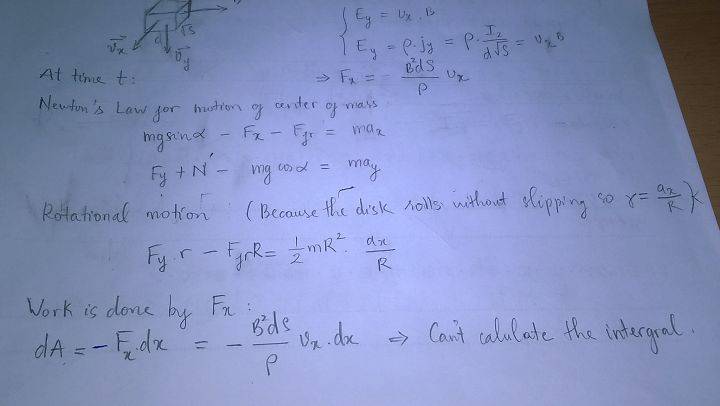 Ey = υx . B
Ey = ρ.jy = ρ. I2 / d√S = υx B
√S
d
υx
υy
At time t:
⇒ Fx = B²dS / ρ υx
Newton's Law for motion of center of mass
mg sinα - Fx - Ffr = max
Fy + N - mg cosα = may
Rotational motion (Because the disk rolls without slipping so γ = ax / R)
Fy.r - FfrR = 1/2 mR². ax / R
Work is done by Fx :
dA = - Fx.dx = - B²dS / ρ υx.dx ⇒ Can't calulate the intergral.